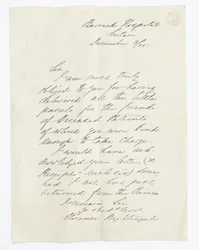 Barrack Hospital
Scutari
December 3/55
Sir
I am most truly
obliged to you for having
delivered all the little
parcels for the friends
of Deceased Patients
of which you were kind
enough to take charge.
I would have ack-
nowledged your letter (&
Receipts enclosed) sooner
had I not but just
returned from the Crimea
I remain Sir
Yr obedt Servt
Florence Nightingale